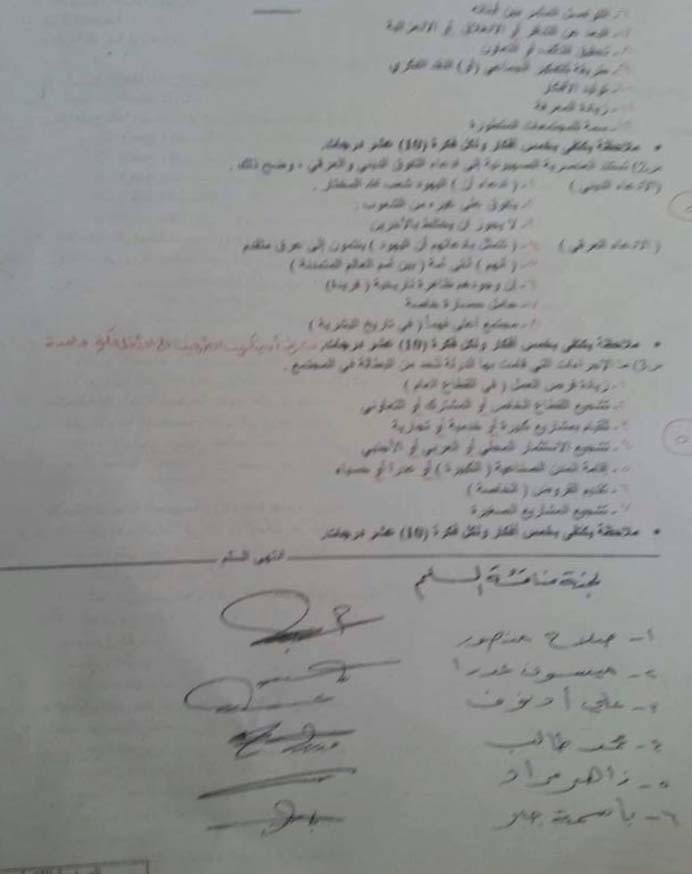 ٢- البعد عن التنافر أو الانغلاق أو الانعزالية
٣- تحقيق التكاتف أو التعاون
٥- توليد الأفكار
٦- زيادة المعرفة
٧- سمة للمجتمعات المتطورة
• ملاحظة يكتفى بخمس أفكار ولكل فكرة (10) عشر درجات.
س2) تستند العنصرية الصهيونية إلى ادعاء التفوق الديني والعرقي، وضح ذلك.
(الادعاء الديني) ١- (ادعاء أن) اليهود شعب الله المختار.
٢- يتفوق على غيره من الشعوب.
٣- لا يجوز أن يختلط بالآخرين
(الادعاء العرقي) ٤- (تتمثل بادعائهم أن اليهود) ينتمون إلى عرق متقدم
٥- (أنهم) أنقى أمة (بين أمم العالم المتمدنة)
٦- أن وجودهم ظاهرة تاريخية (فريدة)
٧- حامل حضارة خاصة
٨- مجتمع أعلى قيماً (في تاريخ البشرية)
• ملاحظة يكتفى بخمس أفكار ولكل فكرة (10) عشر درجات.
س3) ما الإجراءات التي قامت بها الدولة للحد من البطالة في المجتمع.
١- زيادة فرص العمل (في القطاع العام)
٢- تشجيع القطاع الخاص أو المشترك أو التعاوني
٣- القيام بمشاريع كبيرة أو خدمية أو تجارية
٤- تشجيع الاستثمار المحلي أو العربي أو الأجنبي
٥- إقامة المدن الصناعية (الكبيرة) أو عدرا أو حسياء
٦- تقديم القروض (الخاصة)
٧- تشجيع المشاريع الصغيرة
• ملاحظة يكتفى بخمس أفكار ولكل فكرة (10) عشر درجات.
انتهى السلم
لجنة مناقشة السلم
١- صلاح منصور
٢- ميسون
٣- علي
٤- محمد طالب
٥- زاهر مراد
٦- باسمة